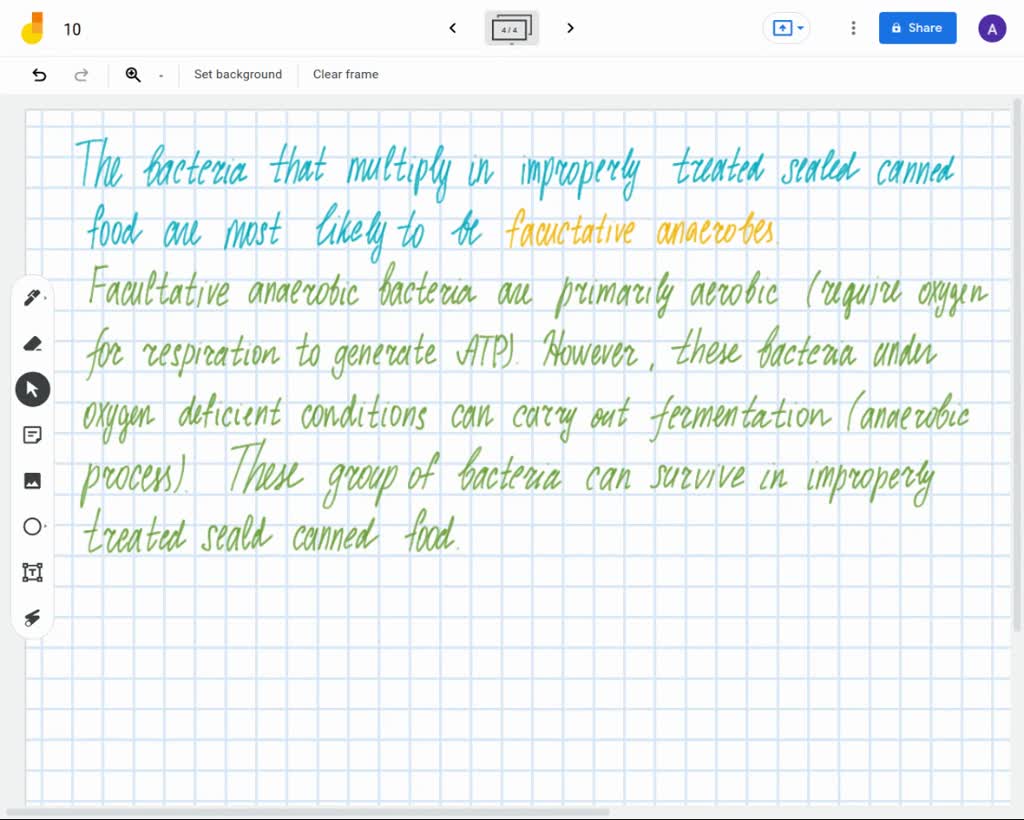 10
4 / 4
Share
A
Set background
Clear frame
The bacteria that multiply in improperly treated sealed canned
food are most likely to be facuctative anaerobes.
Facultative anaerobic bacteria are primarily aerobic (require oxygen
for respiration to generate ATP). However, these bacteria under
oxygen deficient conditions can carry out fermentation (anaerobic
process). These group of bacteria can survive in improperly
treated seald canned food.